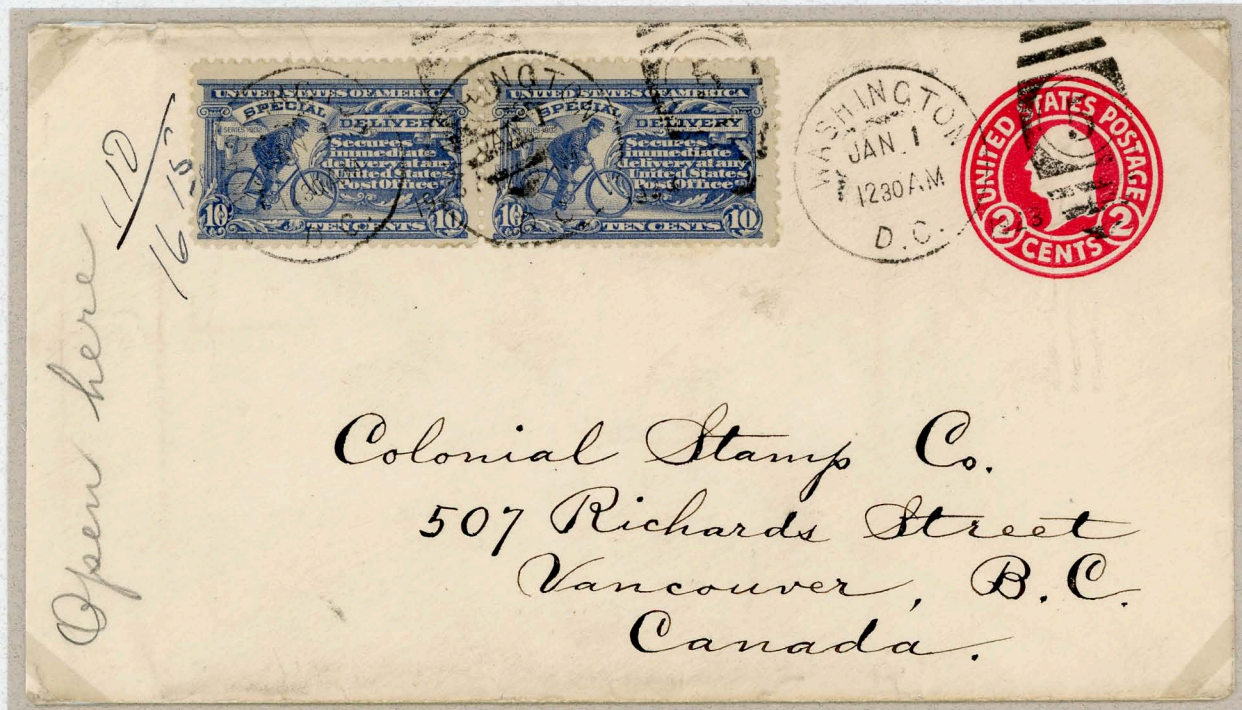 UNITED STATES OF AMERICA
SPECIAL
DELIVERY
SERIES 1902
Secures
immediate
delivery at any
United States
Post Office
10 TEN CENTS 10
UNITED STATES OF AMERICA
SPECIAL
DELIVERY
SERIES 1902
Secures
immediate
delivery at any
United States
Post Office
10 TEN CENTS 10
D.C.
WASHINGTON
JAN. 1
1230 AM
D.C.
5
5
UNITED STATES POSTAGE
2 CENTS 2
Open here
Colonial Stamp Co.
507 Richards Street
Vancouver, B.C.
Canada.